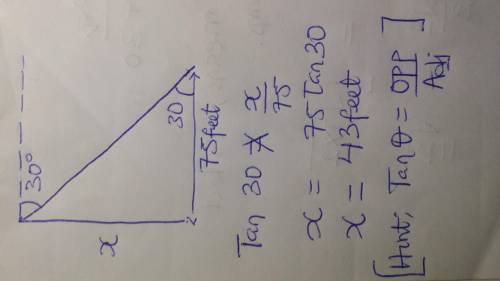 30°
x
30
75feet
Tan 30 = x/75
x = 75Tan30
x = 43feet
[Hint, Tanθ = OPP/Adj]